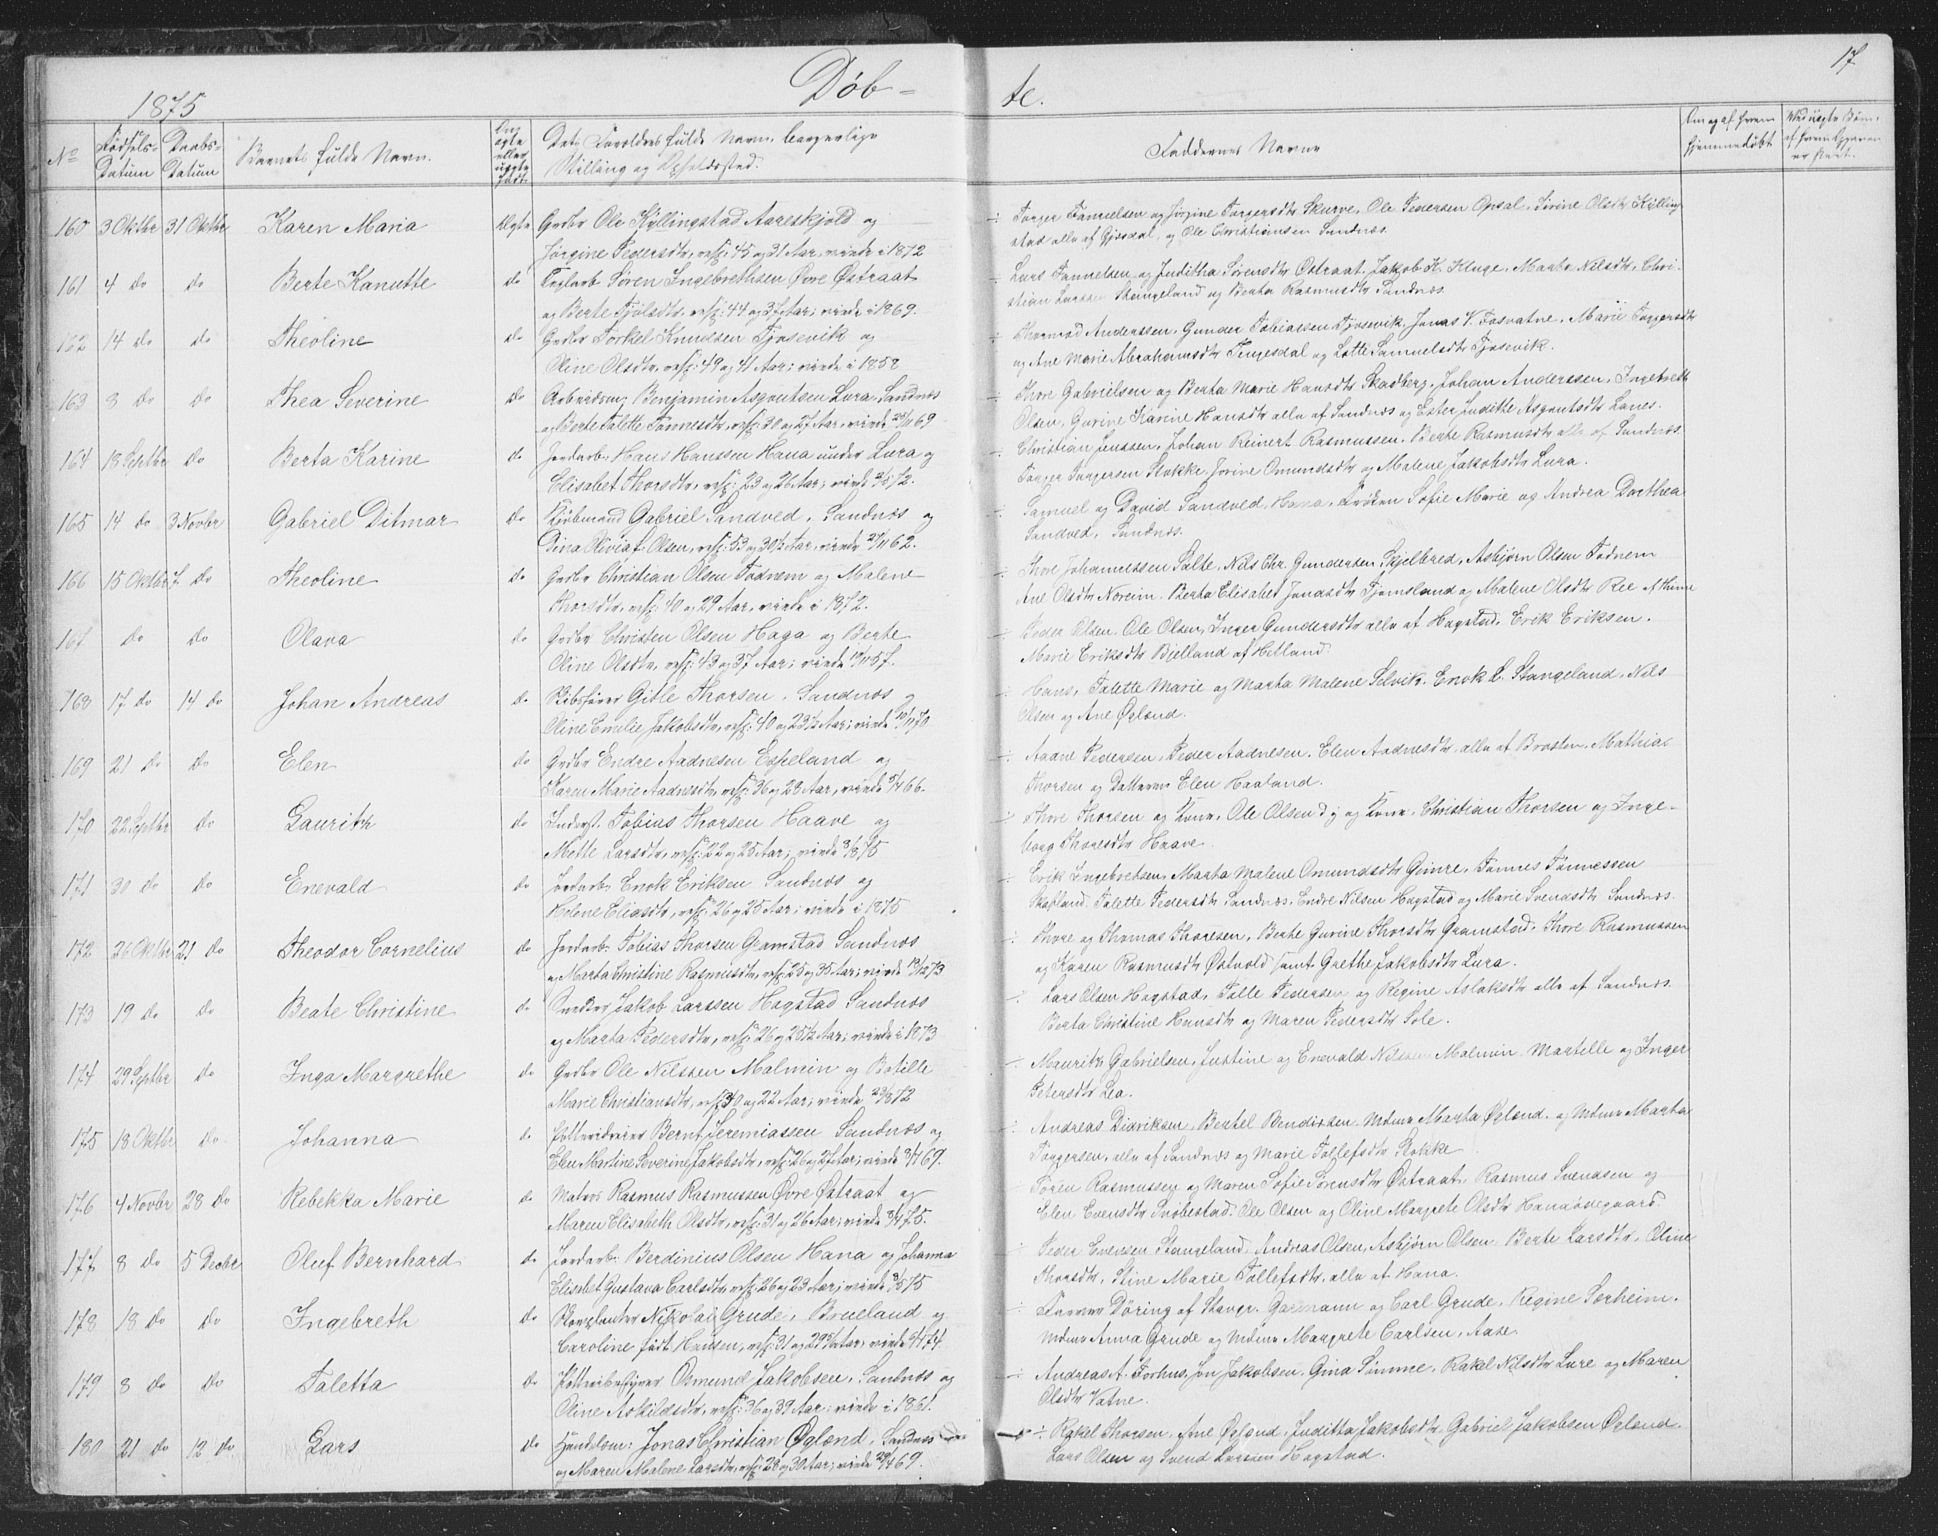 17
1875
Døb-
te.
No
Fødsels-
Datum
Daabs-
Datum
Barnets fulde Navn.
Om
ægte
eller
uægte
født.
Dets Forældres fulde Navn, borgerlige
Stilling og Opholdssted.
Faddernes Navne
Om og af hvem
hjemmedøbt
160 3 Oktbr 31 Oktbr Karen Maria Ægte Grdbr Ole Kyllingstad Aareskjold og
Jørgine Pedersdtr, resp: 45 og 31 Aar, viede i 1872
÷ Torger Tønnesen og Jørgine Torgersdtr Skurve, Ole Pedersen Opsal, Sirine Olsdtr Kylling
stad alle af Gjesdal, og Ole Christiansen Sandnæs.
161 4 do do Berte Kanutte do Teglarb. Søren Ingebrethsen Øvre Østraat
og Berte Tjølsdtr, resp: 44 og 37 Aar; viede i 1869.
÷ Lars Tønnesen og Juditha Sørensdtr Østraat, Jakob K. Kluge, Marta Nilsdtr, Chri-
stian Larssen Stangeland og Berta Rasmusdtr Sandnæs.
162 14 do do Theoline do Grdbr Torkel Knudsen Tjosevik og
Oline Olsdtr, resp: 49 og 41 Aar; viede i 1858
÷ Thormod Anderssen, Gunder Tobiassen Tjosevik, Jonas V. Fosvatne, Marie Torgersdtr
og Ane Marie Abrahamsdtr Tengesdal og Lotte Samuelsdtr Tjosevik.
163 8 do do Thea Severine do Arbeidsm; Benjamin Asgautsen Lura, Sandnæs
og Berte Talette Tønnesdtr, resp: 30 og 27 Aar, viede 69
÷ Thore Gabrielsen og Berta Marie Hansdtr Skadberg, Johan Anderssen, Ingebreth
Olsen, Gurine Karine Hansdtr alle af Sandnæs og Ester Juditte Asgautsdtr Lanes.
164 18 Septbr do Berta Karine do Jordarb. Hans Hanssen Hana under Lura og
Elisabet Thorsdtr, resp: 23 og 26 Aar; viede 2/5 72.
÷ Christian Jenssen, Johan Reinert Rasmussen, Berte Rasmusdtr alle af Sandnæs.
Torger Torgersen Stokke, Jorine Omundsdtr og Malene Jakobsdtr Lura.
165 14 do 3 Novbr Gabriel Ditmar do Kjøbmand Gabriel Sandved, Sandnæs og
Dina Olivia f. Olsen, resp: 53 og 30½ Aar, viede 62.
÷ Samuel og David Sandved, Hana, Frøken Sofie Marie og Andrea Dorthea
Sandved, Sandnæs.
166 15 Oktbr 7 do Theoline do Grdbr Christian Olsen Fodnem og Malene
Thorsdtr, resp: 40 og 29 Aar, viede i 1872.
÷ Thore Johannessen Salte, Nils Chr. Gundersen Skjelbred, Asbjørn Olsen Fodnem
Ane Olsdtr Noreim, Berta Elisabet Jonasdtr Tjemsland og Malene Olsdtr Ree
167 do do Olava do Grdbr Christen Olsen Haga og Berte
Oline Olsdtr, resp: 43 og 37 Aar; viede 57.
÷ Peder Olsen, Ole Olsen, Inger Gundersdtr alle af Hogstad, Erik Eriksen,
Marie Eriksdtr Bjelland af Hetland.
168 17 do 14 do Johan Andreas do Skibsfører Gitle Thorsen, Sandnæs og
Oline Emilie Jakobsdtr, resp: 40 og 23½ Aar; viede 70
÷ Hans, Talette Marie og Marta Malene Selvik, Enok L. Stangeland, Nils
Olsen og Ane Øglænd.
169 21 do do Elen do Grdbr Endre Aadnesen Espeland og
Karen Marie Aadnesdtr, resp: 36 og 23 Aar, viede 66.
÷ Aadne Pedersen, Peder Aadnesen, Elen Aadnesdtr, alle af Brosten, Mathias
Thorsen og Datteren Elen Haaland.
170 22 Septbr do Lauritz do Inderst. Tobias Thorsen Haave og
Mette Larsdtr, resp: 22 og 25 Aar; viede 75
÷ Thore Thorsen og Kone, Ole Olsen d.y. og Kone, Christian Thorsen og Inge-
borg Thoresdtr Haave.
171 30 do do Enevald do Jordarb. Enok Eriksen Sandnæs og
Helene Eliasdtr, resp: 26 og 25 Aar; viede i 1875
÷ Erik Ingebretsen, Marta Malene Omundsdtr Gimre, Tønnes Tønnessen
Skjæland, Talette Pedersdtr Sandnæs, Endre Nilsen Hogstad og Marie Svendsdtr Sandnæs.
172 26 Oktbr 21 do Theodor Cornelius do Jordarb. Tobias Thorsen Gramstad Sandnæs
og Marta Christine Rasmusdtr, resp: 25 og 35 Aar; viede 73
÷ Thore og Thomas Thoresen, Berte Gurine Thorsdtr Gramstad, Thore Rasmussen
og Karen Rasmusdtr Østvold samt Grethe Jakobsdtr Lura.
173 19 do do Beate Christine do Snedker Jakob Larssen Hogstad Sandnæs
og Marta Pedersdtr, resp: 26 og 25½ Aar; viede i 1873
÷ Lars Olsen Hogstad, Tolle Pedersen og Regine Aslaksdtr alle af Sandnæs.
Berta Christine Hansdtr og Maren Pedersdtr Sole.
174 29 Septbr do Inga Margrethe do Grdbr Ole Nilssen Malmin og Botille
Marie Christiansdtr, resp: 30 og 22 Aar; viede 72
÷ Mauritz Gabrielsen, Justine og Enevald Nilssen Malmin, Martille og Inger
Petersdtr Lea.
175 18 Oktbr do Johanna do Pottedreier Bernt Jeremiassen Sandnæs og
Elen Martine Severine Jakobsdtr, resp: 26 og 27 Aar; viede 69.
÷ Andreas Didriksen, Bertel Bendixsen, Mdme Marta Øglænd og Mdme Marta
Torgersen, alle af Sandnæs og Marie Tollefsdtr Stokke
176 4 Novbr 28 do Rebekka Marie do Matros Rasmus Rasmussen Øvre Østraat og
Maren Elisabeth Olsdtr, resp: 31 og 26 Aar; viede 75.
÷ Søren Rasmussen og Maren Sofie Sørensdtr Østraat, Rasmus Svendsen og
Elen Evensdtr Svibestad, Ole Olsen og Oline Margrete Olsdtr Hanaødegaard.
177 8 do 5 Decbr Oluf Bernhard do Jordarb. Berdinius Olsen Hana og Johanna
Elisabet Gustava Carlsdtr, resp: 26 og 23 Aar; viede 75
÷ Peder Evensen Stangeland, Andreas Olsen, Asbjørn Olsen, Berte Larsdtr, Oline
Thorsdtr, Stine Marie Tollefsdtr, alle af Hana.
178 18 do do Ingebreth do Nikolai Grude, Brueland og
Caroline født Hansen, resp: 31 og 29 Aar, viede 74.
÷ Døring af Stavgr. Garmann og Carl Grude, Regine Sørheim,
Mdme Anna Grude og Mdme Margrete Carlsen, Aase.
179 8 do do Taletta do Osmund Jakobsen, Sandnæs og
Oline Askildsdtr, resp: 36 og 39 Aar; viede i 1861.
÷ Andreas A. Forhus, Jon Jakobsen, Gina Sømme, Rakel Nilsdtr Lure og Maren
Olsdtr Vatne.
180 21 do 12 do Lars do Handelsm: Jonas Christian Øglænd, Sandnæs
og Maren Malene Larsdtr, resp: 28 og 30 Aar; viede 69.
÷ Rakel Thorsen, Ane Øglænd, Juditta Jakobsdtr, Gabriel Jakobsen Øglænd.
Lars Olsen og Svend Larssen Hogstad.